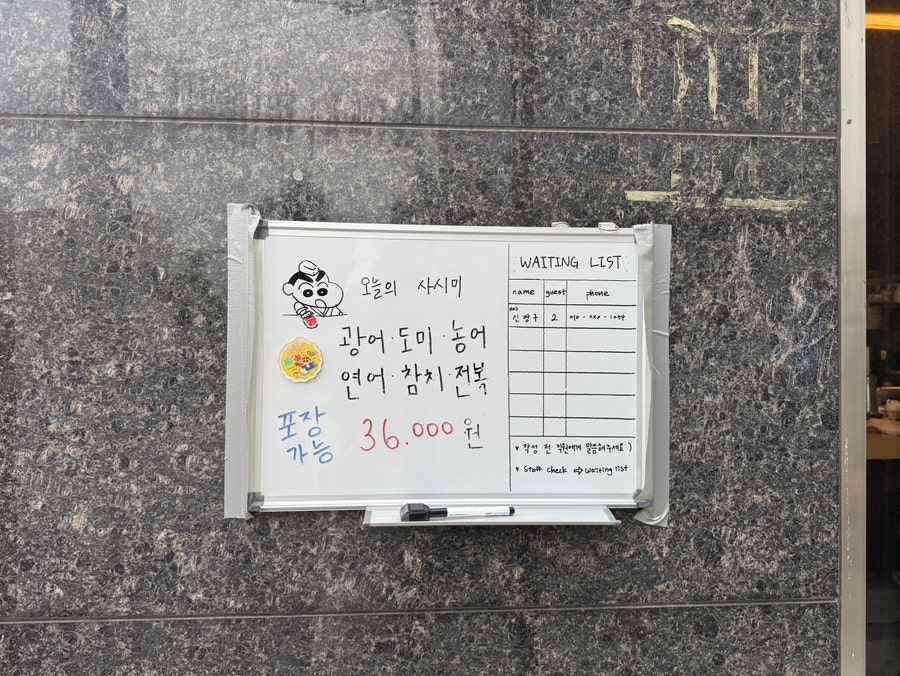 오늘의 사시미
광어·도미·농어
연어·참치·전복
포장
가능
36.000원
WAITING LIST
name guest phone
ex)
신짱구 2 010-xxx-1234
∨ 작성 전 직원에게 말씀해주세요:)
∨ Staff check ⇨ waiting list